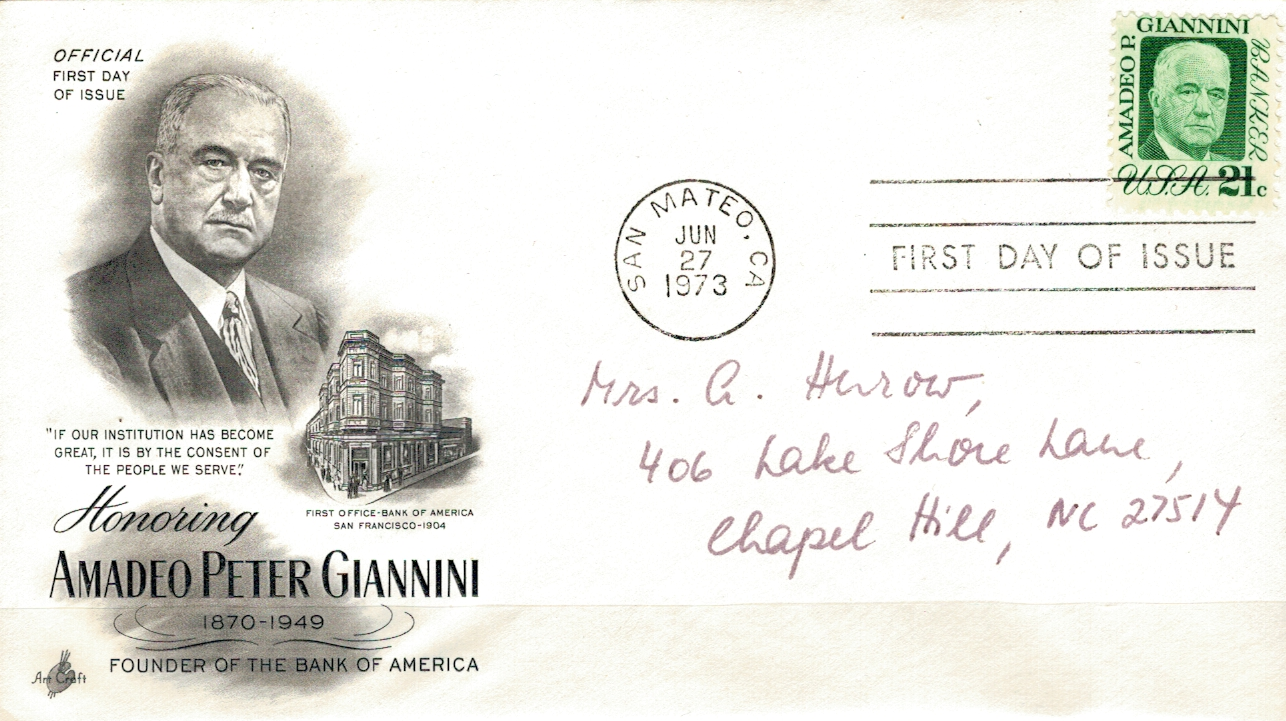 OFFICIAL
FIRST DAY
OF ISSUE
"IF OUR INSTITUTION HAS BECOME
GREAT, IT IS BY THE CONSENT OF
THE PEOPLE WE SERVE."
FIRST OFFICE-BANK OF AMERICA
SAN FRANCISCO-1904
Honoring
AMADEO PETER GIANNINI
1870-1949
FOUNDER OF THE BANK OF AMERICA
Art Craft
SAN MATEO, CA
JUN
27
1973
AMADEO P.
GIANNINI
BANKER
U.S.A. 21c
FIRST DAY OF ISSUE
Mrs. A. Hurow,
406 Lake Shore Lane,
Chapel Hill, NC 27514